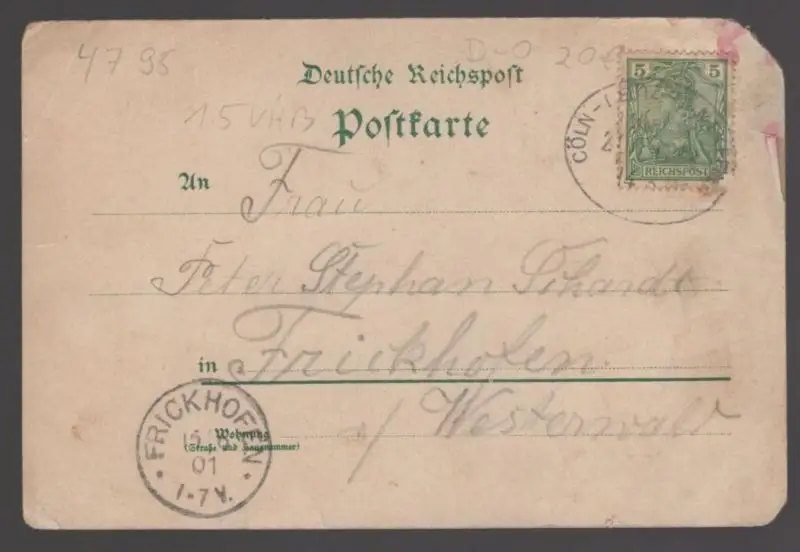 4795
D-O 20€
Deutsche Reichspost
15 VHB
Postkarte
5 5
REICHSPOST
CÖLN
An Frau
Peter Stephan Schardt
in Frickhofen
a/ Westerwald
Wohnung
(Straße und Hausnummer)
FRICKHOFEN
01
1-7 V.